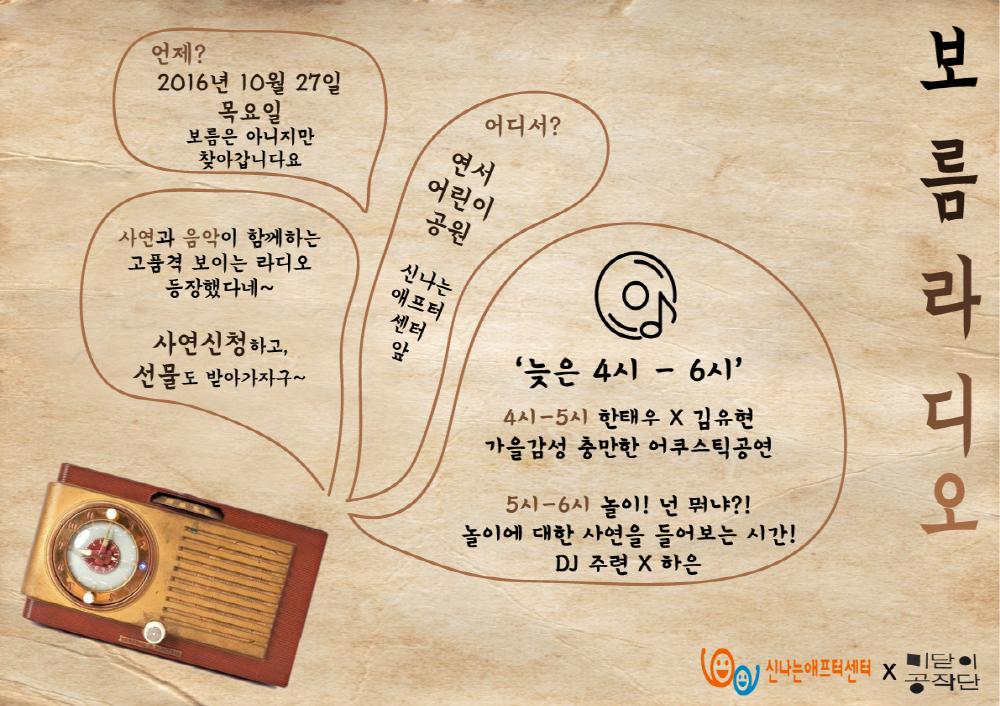 보름라디오
언제?
2016년 10월 27일
목요일
보름은 아니지만
찾아갑니다요
어디서?
연서
어린이
공원
신나는
애프터
센터
앞
사연과 음악이 함께하는
고품격 보이는 라디오
등장했다네~
사연신청하고,
선물도 받아가자구~
‘늦은 4시 - 6시’
4시-5시 한태우 X 김유현
가을감성 충만한 어쿠스틱공연
5시-6시 놀이! 넌 뭐냐?!
놀이에 대한 사연을 들어보는 시간!
DJ 주련 X 하은
신나는애프터센터 X 미닫이
공작단